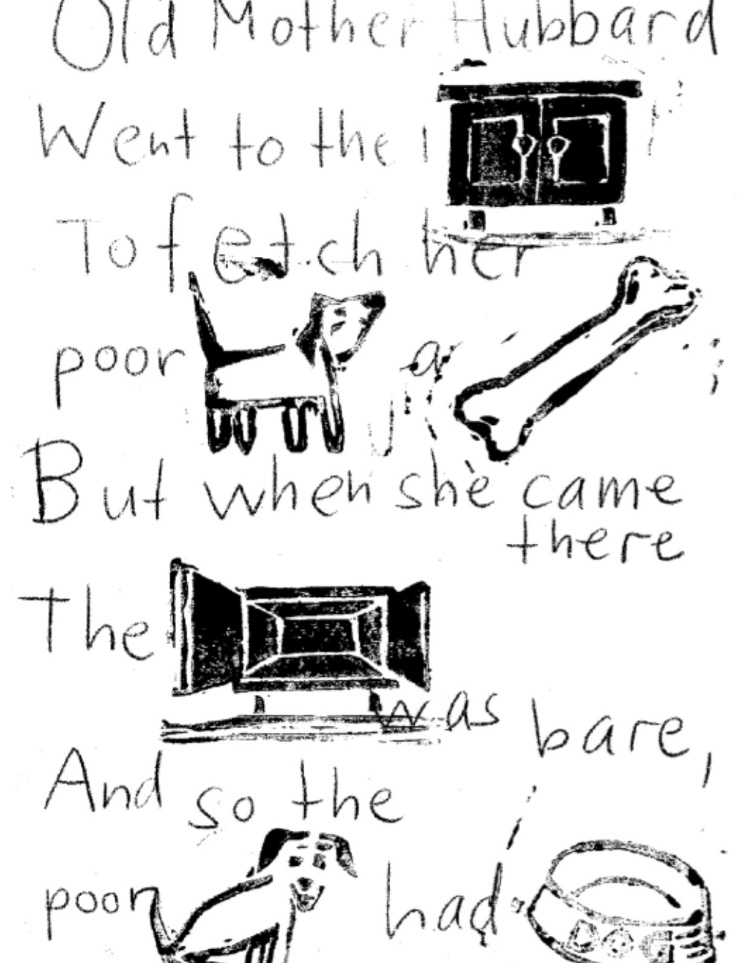 Old Mother Hubbard
Went to the
To fetch her
poor a ;
But when she came
there
The was bare,
And so the
poor had